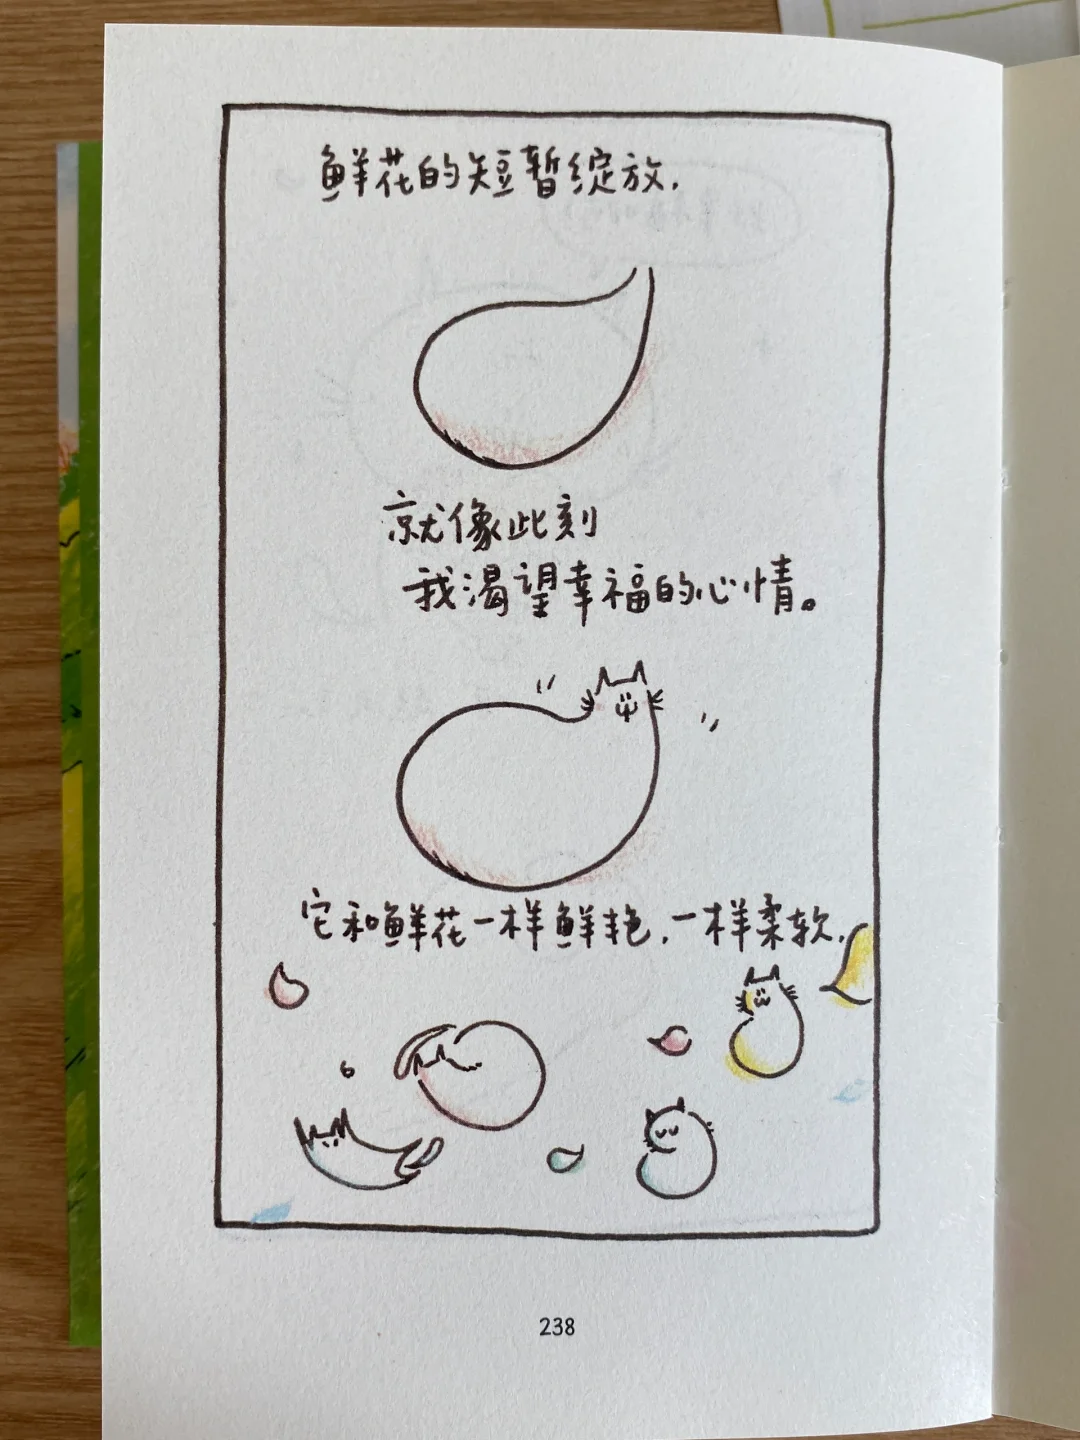 鲜花的短暂绽放，
就像此刻
我渴望幸福的心情。
它和鲜花一样鲜艳，一样柔软，
238